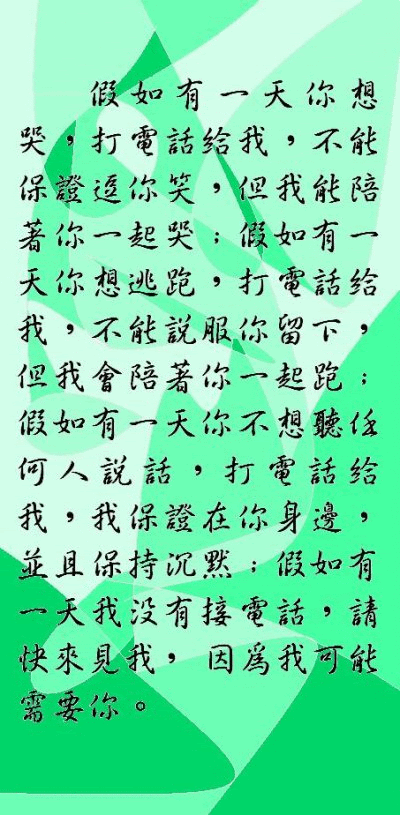 假如有一天你想
哭，打電話給我，不能
保證逗你笑，但我能陪
著你一起哭；假如有一
天你想逃跑，打電話給
我，不能說服你留下，
但我會陪著你一起跑；
假如有一天你不想聽任
何人說話，打電話給
我，我保證在你身邊，
並且保持沉默；假如有
一天我没有接電話，請
快來見我，因爲我可能
需要你。